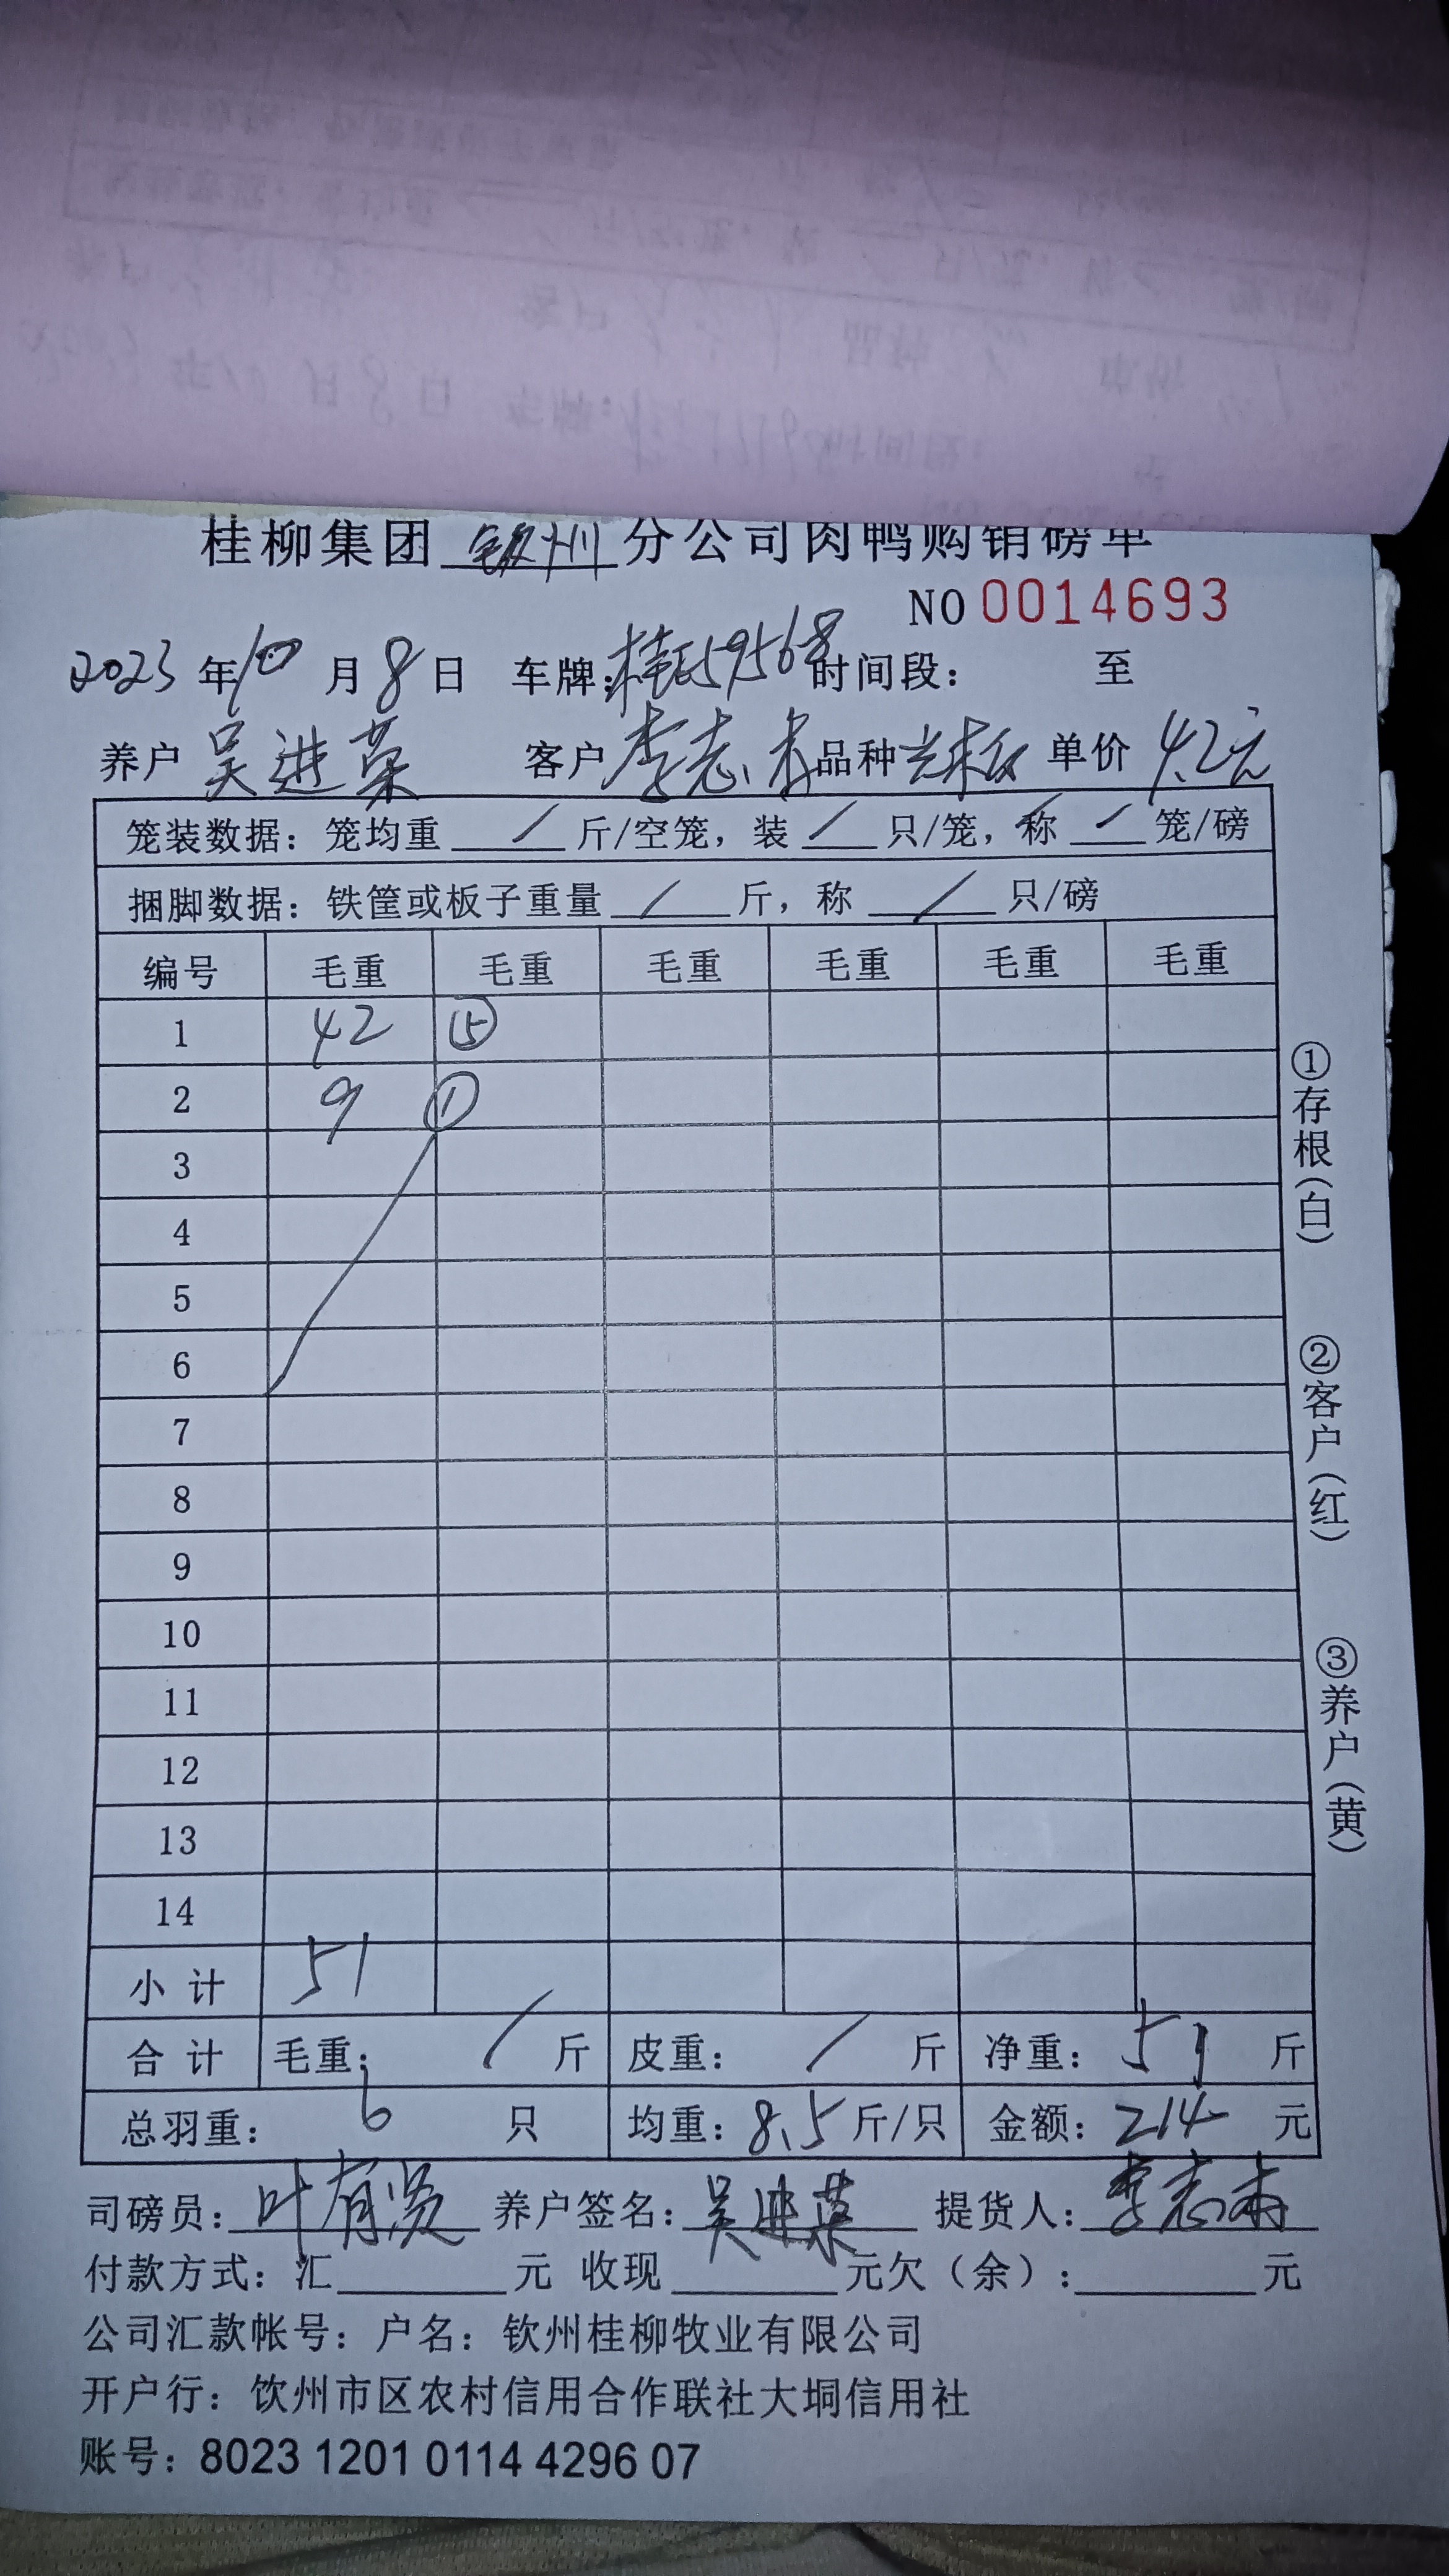 桂柳集团 钦州 分公司肉鸭购销磅单
NO 0014693
2023 年 10 月 8 日 车牌: 桂59568 时间段: 至
养户 吴进荣 客户 李志 品种 单价 4.2元
笼装数据: 笼均重 / 斤/空笼, 装 / 只/笼, 称 / 笼/磅
捆脚数据: 铁筐或板子重量 / 斤, 称 / 只/磅
编号 毛重 毛重 毛重 毛重 毛重 毛重
1 42 ⑤
2 9 ①
3
4
5
6
7
8
9
10
11
12
13
14
小 计 51
合 计 毛重: / 斤 皮重: / 斤 净重: 51 斤
总羽重: 6 只 均重: 8.5 斤/只 金额: 214 元
司磅员: 叶有贤 养户签名: 吴进荣 提货人: 李志
付款方式: 汇 元 收现 元欠(余): 元
公司汇款帐号: 户名: 钦州桂柳牧业有限公司
开户行: 饮州市区农村信用合作联社大垌信用社
账号: 8023 1201 0114 4296 07
①存根(白)
②客户(红)
③养户(黄)